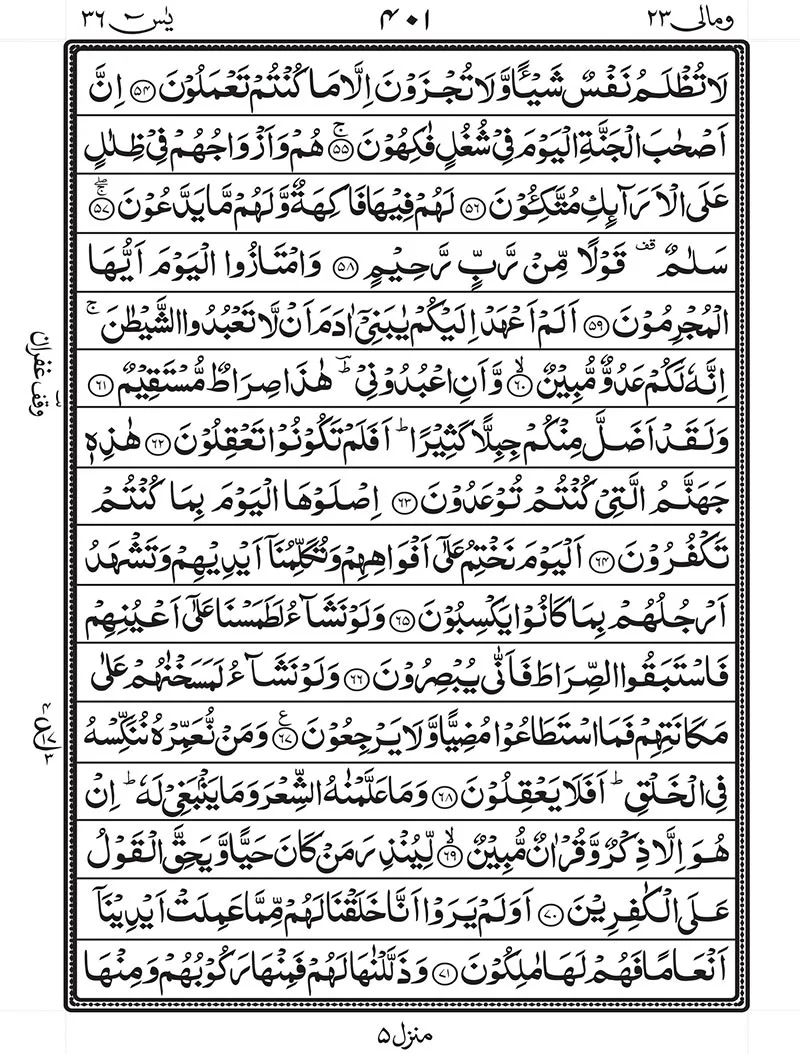 ومالی ۲۳
۴۰۱
یٰسٓ ۳۶
لَا تُظۡلَمُ نَفۡسٌ شَیۡـًٔا وَّلَا تُجۡزَوۡنَ اِلَّا مَا کُنۡتُمۡ تَعۡمَلُوۡنَ ﴿۵۴﴾ اِنَّ
اَصۡحٰبَ الۡجَنَّۃِ الۡیَوۡمَ فِیۡ شُغُلٍ فٰکِہُوۡنَ ﴿ۚ۵۵﴾ ہُمۡ وَاَزۡوَاجُہُمۡ فِیۡ ظِلٰلٍ
عَلَی الۡاَرَآئِکِ مُتَّکِـُٔوۡنَ ﴿۵۶﴾ لَہُمۡ فِیۡہَا فَاکِہَۃٌ وَّلَہُمۡ مَّا یَدَّعُوۡنَ ﴿ۚۖ۵۷﴾
سَلٰمٌ ۟ قف قَوۡلًا مِّنۡ رَّبٍّ رَّحِیۡمٍ ﴿۵۸﴾ وَامۡتَازُوا الۡیَوۡمَ اَیُّہَا
الۡمُجۡرِمُوۡنَ ﴿۵۹﴾ اَلَمۡ اَعۡہَدۡ اِلَیۡکُمۡ یٰبَنِیۡۤ اٰدَمَ اَنۡ لَّا تَعۡبُدُوا الشَّیۡطٰنَ ۚ
اِنَّہٗ لَکُمۡ عَدُوٌّ مُّبِیۡنٌ ﴿ۙ۶۰﴾ وَّاَنِ اعۡبُدُوۡنِیۡ ؕؔ ہٰذَا صِرَاطٌ مُّسۡتَقِیۡمٌ ﴿۶۱﴾
وقف غفران
وَلَقَدۡ اَضَلَّ مِنۡکُمۡ جِبِلًّا کَثِیۡرًا ؕ اَفَلَمۡ تَکُوۡنُوۡا تَعۡقِلُوۡنَ ﴿۶۲﴾ ہٰذِہٖ
جَہَنَّمُ الَّتِیۡ کُنۡتُمۡ تُوۡعَدُوۡنَ ﴿۶۳﴾ اِصۡلَوۡہَا الۡیَوۡمَ بِمَا کُنۡتُمۡ
تَکۡفُرُوۡنَ ﴿۶۴﴾ اَلۡیَوۡمَ نَخۡتِمُ عَلٰۤی اَفۡوَاہِہِمۡ وَتُکَلِّمُنَاۤ اَیۡدِیۡہِمۡ وَتَشۡہَدُ
اَرۡجُلُہُمۡ بِمَا کَانُوۡا یَکۡسِبُوۡنَ ﴿۶۵﴾ وَلَوۡ نَشَآءُ لَطَمَسۡنَا عَلٰۤی اَعۡیُنِہِمۡ
فَاسۡتَبَقُوا الصِّرَاطَ فَاَنّٰی یُبۡصِرُوۡنَ ﴿۶۶﴾ وَلَوۡ نَشَآءُ لَمَسَخۡنٰہُمۡ عَلٰی
مَکَانَتِہِمۡ فَمَا اسۡتَطَاعُوۡا مُضِیًّا وَّلَا یَرۡجِعُوۡنَ ﴿۶۷﴾ ع وَمَنۡ نُّعَمِّرۡہُ نُنَکِّسۡہُ
۴ ع ۱۷ ۳
فِی الۡخَلۡقِ ؕ اَفَلَا یَعۡقِلُوۡنَ ﴿۶۸﴾ وَمَا عَلَّمۡنٰہُ الشِّعۡرَ وَمَا یَنۡۢبَغِیۡ لَہٗ ؕ اِنۡ
ہُوَ اِلَّا ذِکۡرٌ وَّقُرۡاٰنٌ مُّبِیۡنٌ ﴿ۙ۶۹﴾ لِّیُنۡذِرَ مَنۡ کَانَ حَیًّا وَّیَحِقَّ الۡقَوۡلُ
عَلَی الۡکٰفِرِیۡنَ ﴿۷۰﴾ اَوَلَمۡ یَرَوۡا اَنَّا خَلَقۡنَا لَہُمۡ مِّمَّا عَمِلَتۡ اَیۡدِیۡنَاۤ
اَنۡعَامًا فَہُمۡ لَہَا مٰلِکُوۡنَ ﴿۷۱﴾ وَذَلَّلۡنٰہَا لَہُمۡ فَمِنۡہَا رَکُوۡبُہُمۡ وَمِنۡہَا
منزل ۵